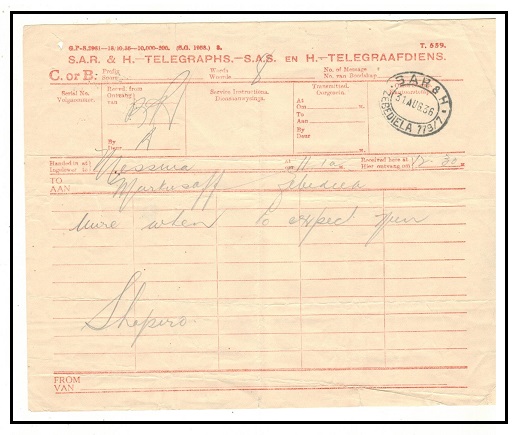 G.P.-S.2861—18.10.35—10,000-200. (S.O. 1935.) S. T. 559.
S.A.R. & H.—TELEGRAPHS.—S.A.S. EN H.—TELEGRAAFDIENS.
C. or B. Prefix Words 8 No. of Message
Woorde No. van Boodskap
Serial No. Recvd. from Service Instructions. Transmitted.
Volgnommer. Ontvang van Diensaanwysings.
At
Om
To
Aan
By Deur A By Deur
S.A.R & H.
31 AUG 36
ZEBEDIELA 773/7
Handed in at Messina at Received here at 12.30
Ingelewer te Hier ontvang om
TO
AAN Zebediela
wire when to expect you
Shapiro
FROM
VAN